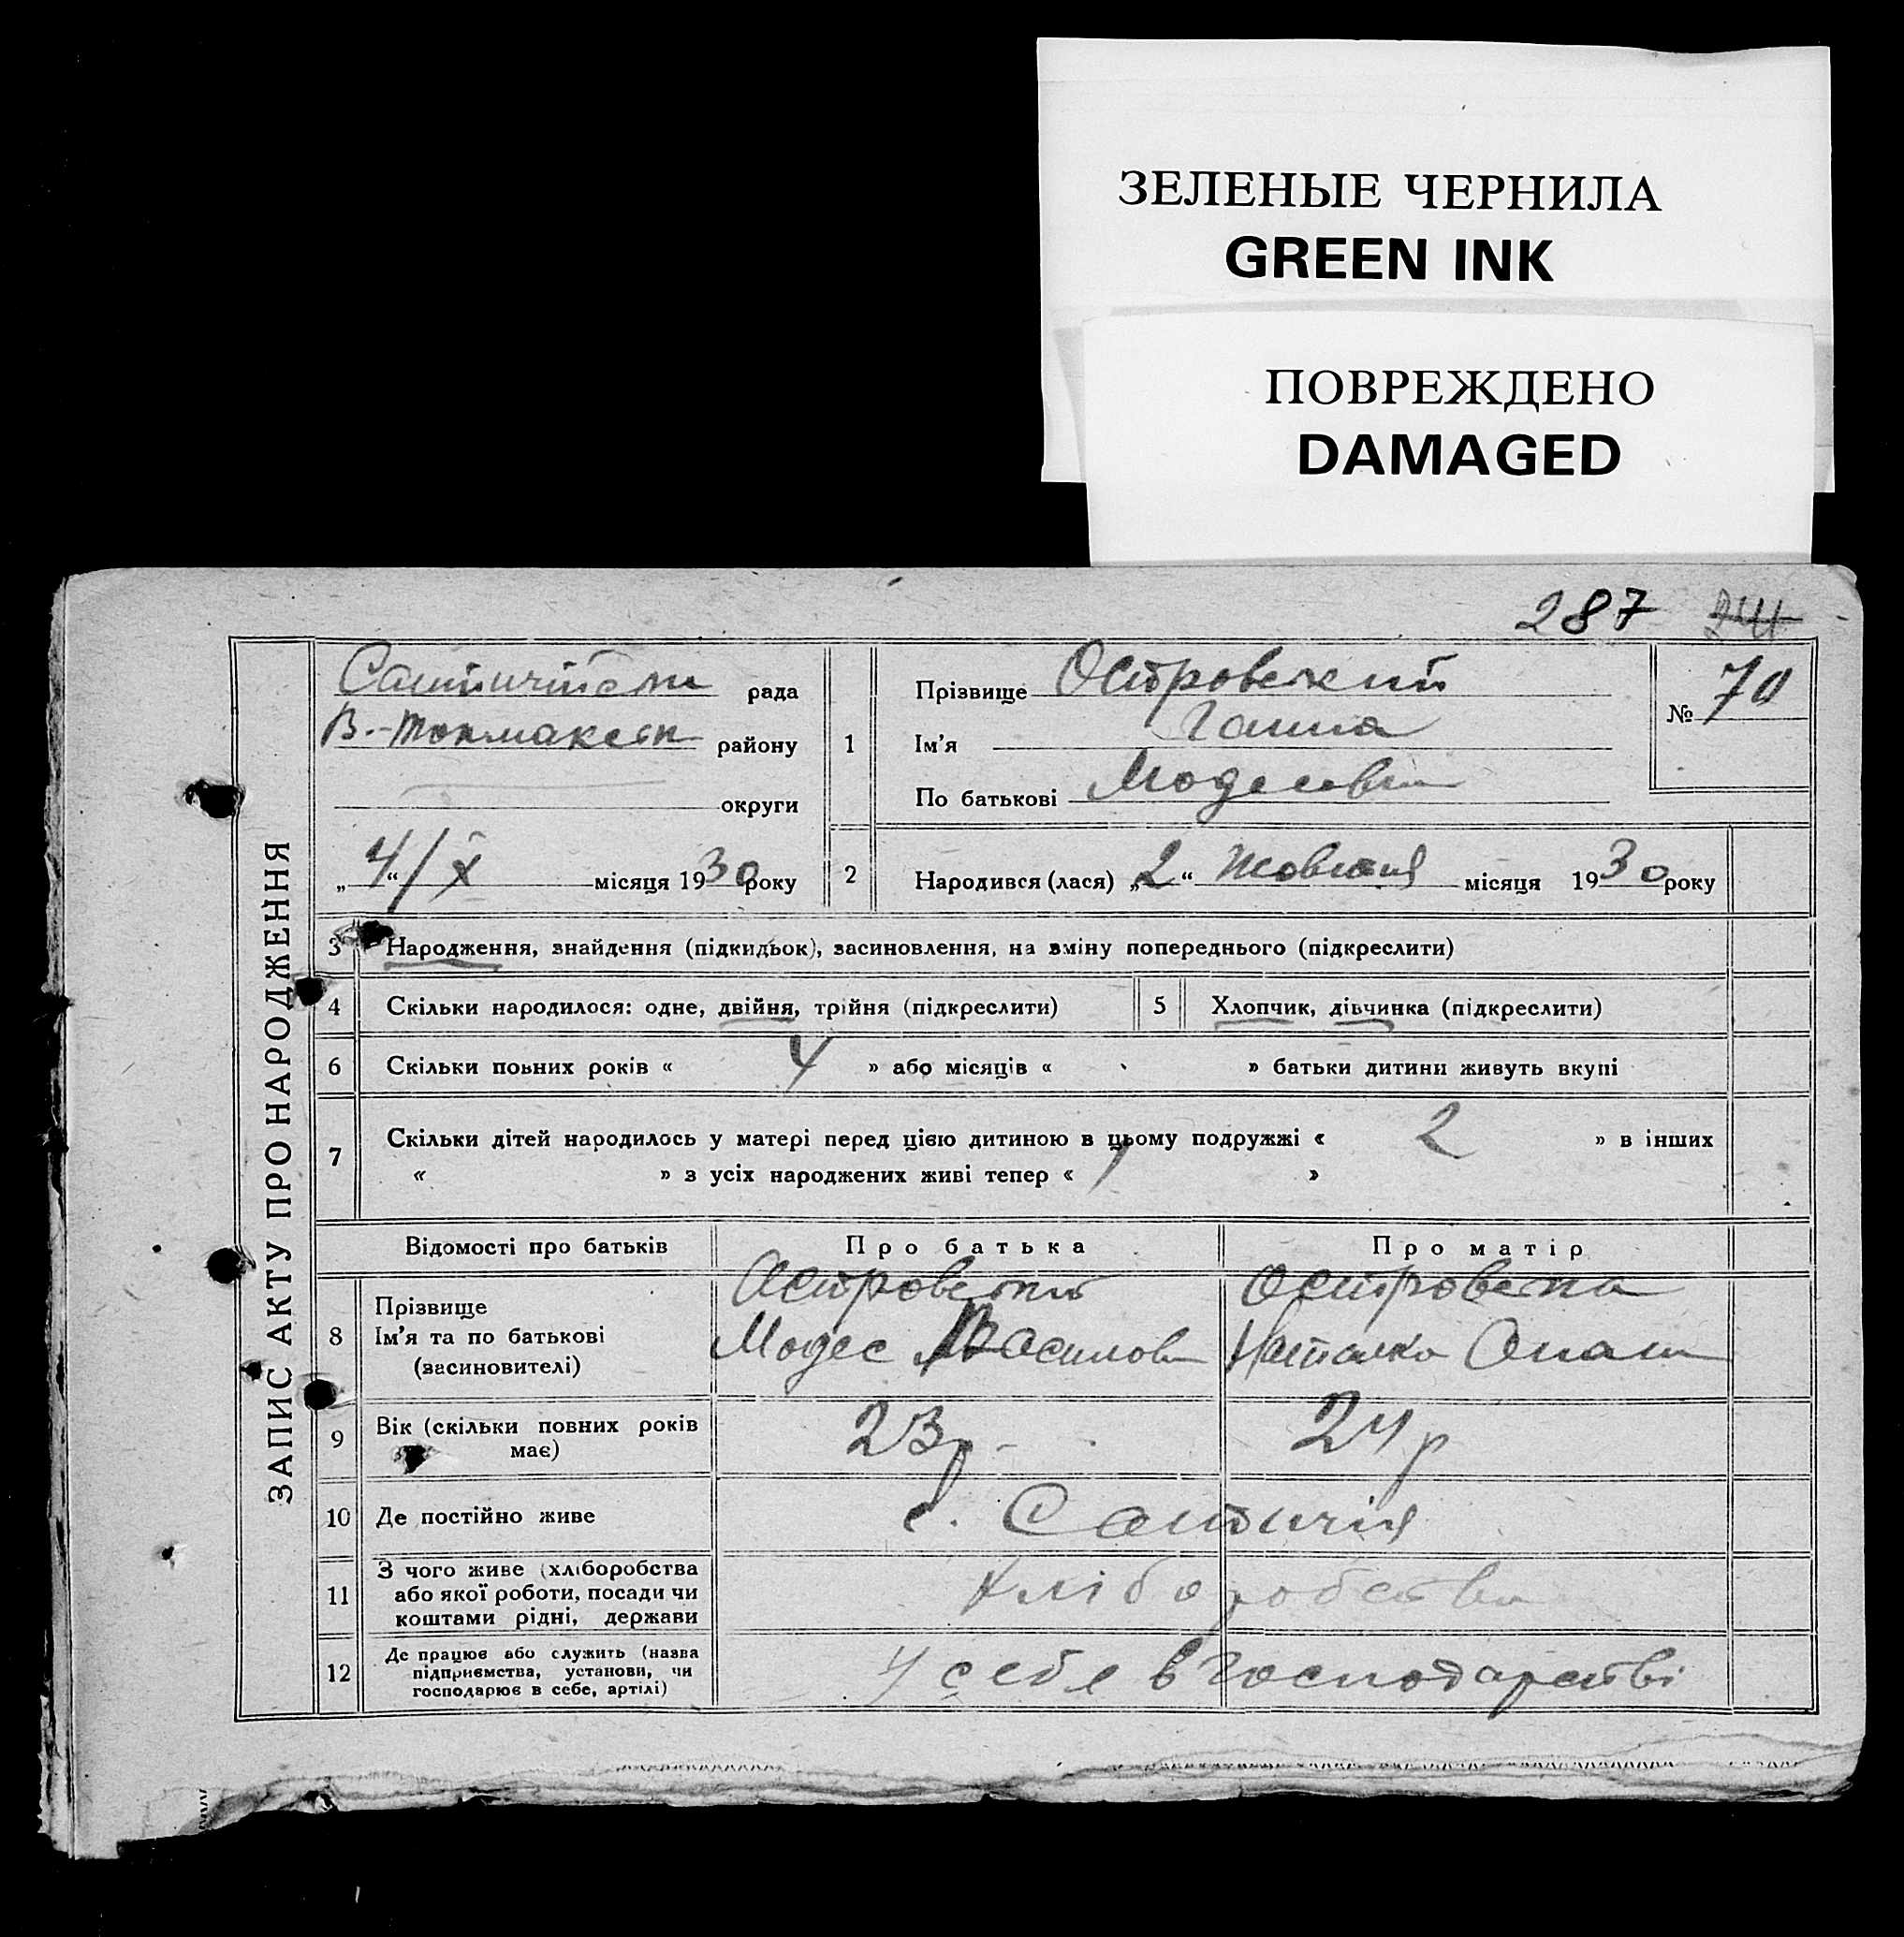 ЗЕЛЕНЫЕ ЧЕРНИЛА
GREEN INK
ПОВРЕЖДЕНО
DAMAGED
287
ЗАПИС АКТУ ПРО НАРОДЖЕННЯ
рада
В.-Токмакськ району
округи
„4“/X місяця 1930 року
1
Прізвище Островський
Ім'я Ганна
По батькові
№ 70
2
Народився (лася) „2“ Жовтня місяця 1930 року
3 Народження, знайдення (підкидьок), засиновлення, на зміну попереднього (підкреслити)
4 Скільки народилося: одне, двійня, трійня (підкреслити)
5 Хлопчик, дівчинка (підкреслити)
6 Скільки повних років « 4 » або місяців « » батьки дитини живуть вкупі
7 Скільки дітей народилось у матері перед цією дитиною в цьому подружжі « 2 » в інших
« » з усіх народжених живі тепер « 1 »
Відомості про батьків Про батька Про матір
8 Прізвище
Ім'я та по батькові
(засиновителі)
Островський
Модес Василов
Островська
Наталка Опан
9 Вік (скільки повних років
має)
23 р. 24 р
10 Де постійно живе с.
11 З чого живе (хліборобства
або якої роботи, посади чи
коштами рідні, держави
Хліборобства
12 Де працює або служить (назва
підприємства, установи, чи
господарює в себе, артілі)
У себе в господарстві